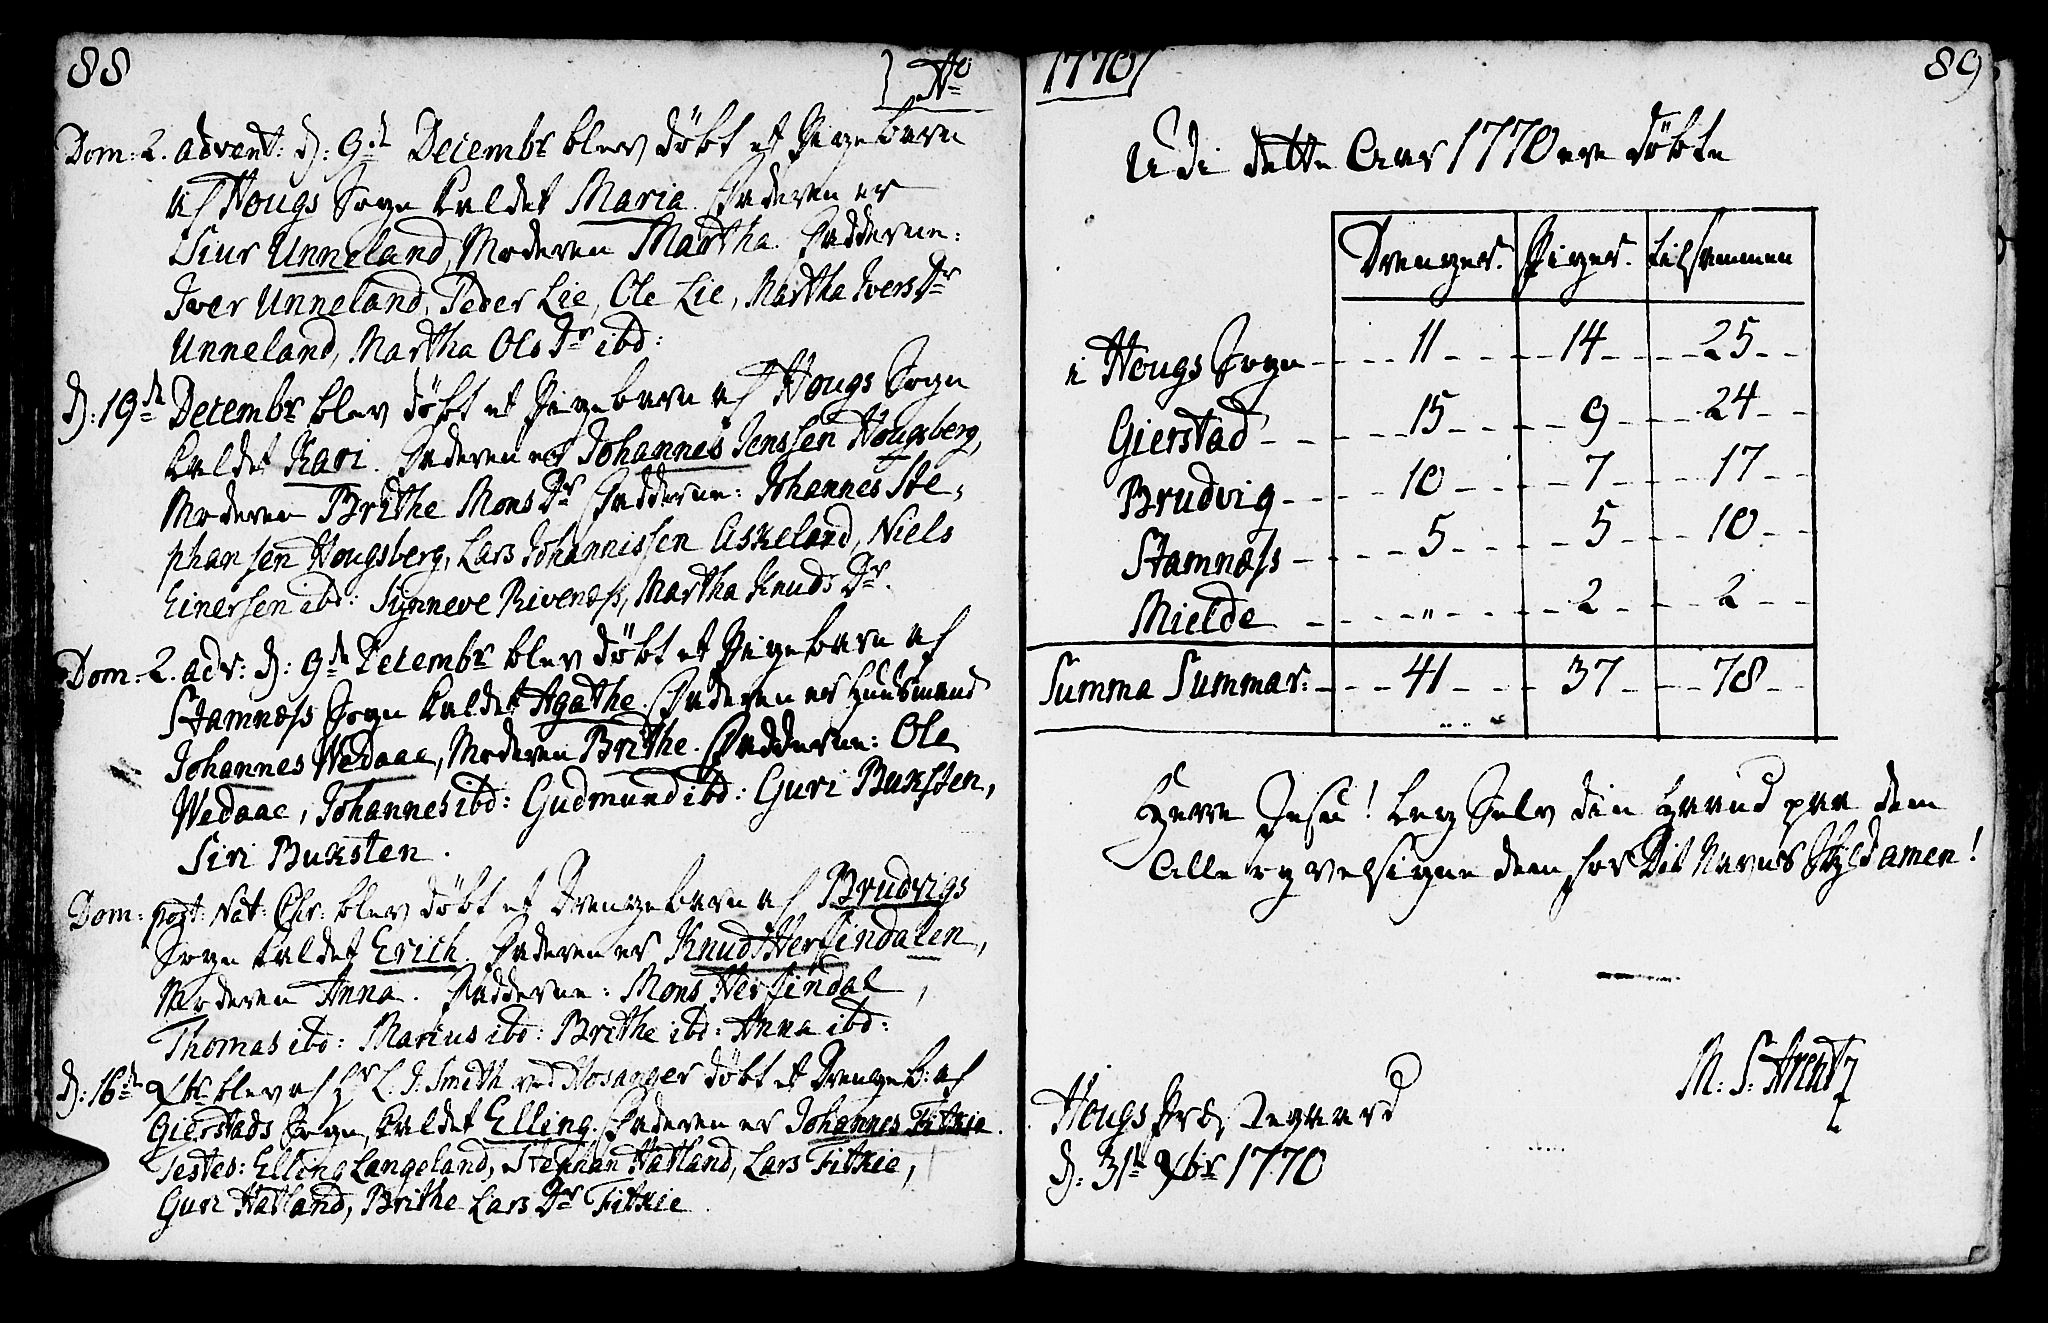 88
Ao
Dom: 2. advent: d: 9de Decembr blev döbt et Pigebarn
af Hougs Sogn kaldet Maria. Faderen er
Siur Unneland, Moderen Martha. Fadderne:
Iver Unneland, Peder Lie, Ole Lie, Martha Ivers Dr
Unneland, Martha Ols Dr ibd:
d: 19de Decembr blev döbt et Pigebarn af Hougs Sogn
kaldet Kari. Faderen er Johannes Jenssen Hougsberg,
Moderen Brithe Mons Dr Fadderne: Johannes Ste,
phansen Hougsberg, Lars Johannissen Askeland, Niels
Einersen ibd: Synneve Rivenæss, Martha Knuds Dr.
Dom: 2. adv: d: 9de Decembr blev döbt et Pigebarn af
Stamnæss Sogn kaldet Agathe. Faderen er Huusmand
Johannes Wedaae, Moderen Brithe. Fadderne: Ole
Wedaae, Johannes ibd: Gudmund ibd: Guri Buksten,
Siri Buksten.
Dom: post: Nat: Chr: blev döbt et Drengebarn af Brudvigs
Sogn kaldet Erich. Faderen er Knud Hersindalen,
Moderen Anna. Fadderne: Mons Hersindal,
Thomas ibd: Marius ibd: Brithe ibd: Anna ibd:
d: 16de Xbr blev af Hr L. J. Smith ved Hosanger döbt et Drengeb: af
Gierstads Sogn, kaldet Elling. Faderen er Johannes Fitkie.
Testes: Elling Langeland, Stephan Hatland, Lars Fitkie,
Guri Hatland, Brithe Lars Dr Fitkie.
1770
89
Udi dette Aar 1770 ere döbte
Drenger. Piger. tilsammen
i Hougs Sogn 11 14 25
Gierstad 15 9 24
Brudvig 10 7 17
Stamnæss 5 5 10
Mielde " 2 2
Summa Summar: 41 37 78
Herre Jesu! Leg Selv din Haand paa dem
Alle og velsigne dem for Dit Navns Skyld amen!
M: S: Arentz
Hougs Præstegaard
d: 31te Xbr 1770